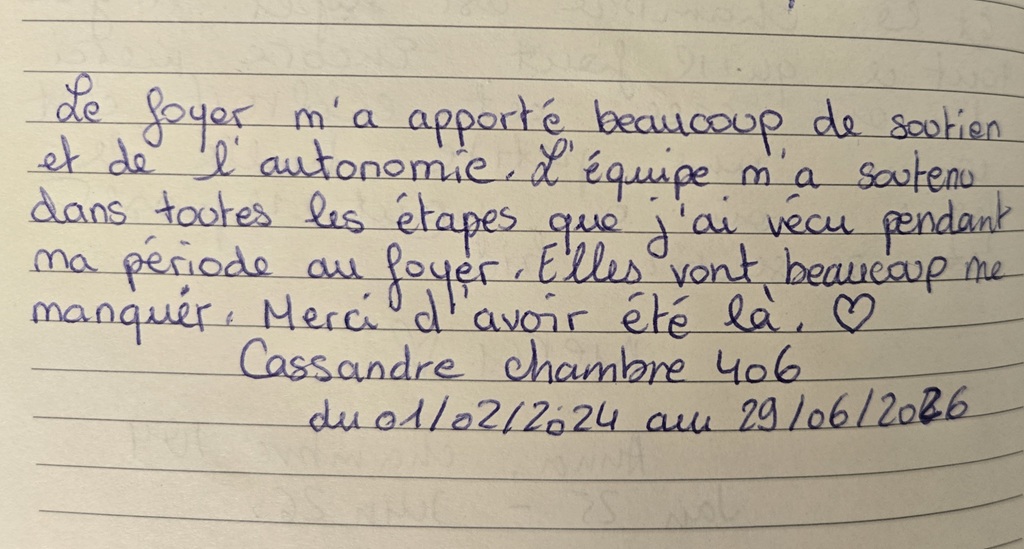 Le foyer m'a apporté beaucoup de soutien
et de l'autonomie. L'équipe m'a soutenu
dans toutes les étapes que j'ai vécu pendant
ma période au foyer. Elles vont beaucoup me
manquér. Merci d'avoir été là. ♡
Cassandre chambre 406
du 01/02/2024 au 29/06/2026